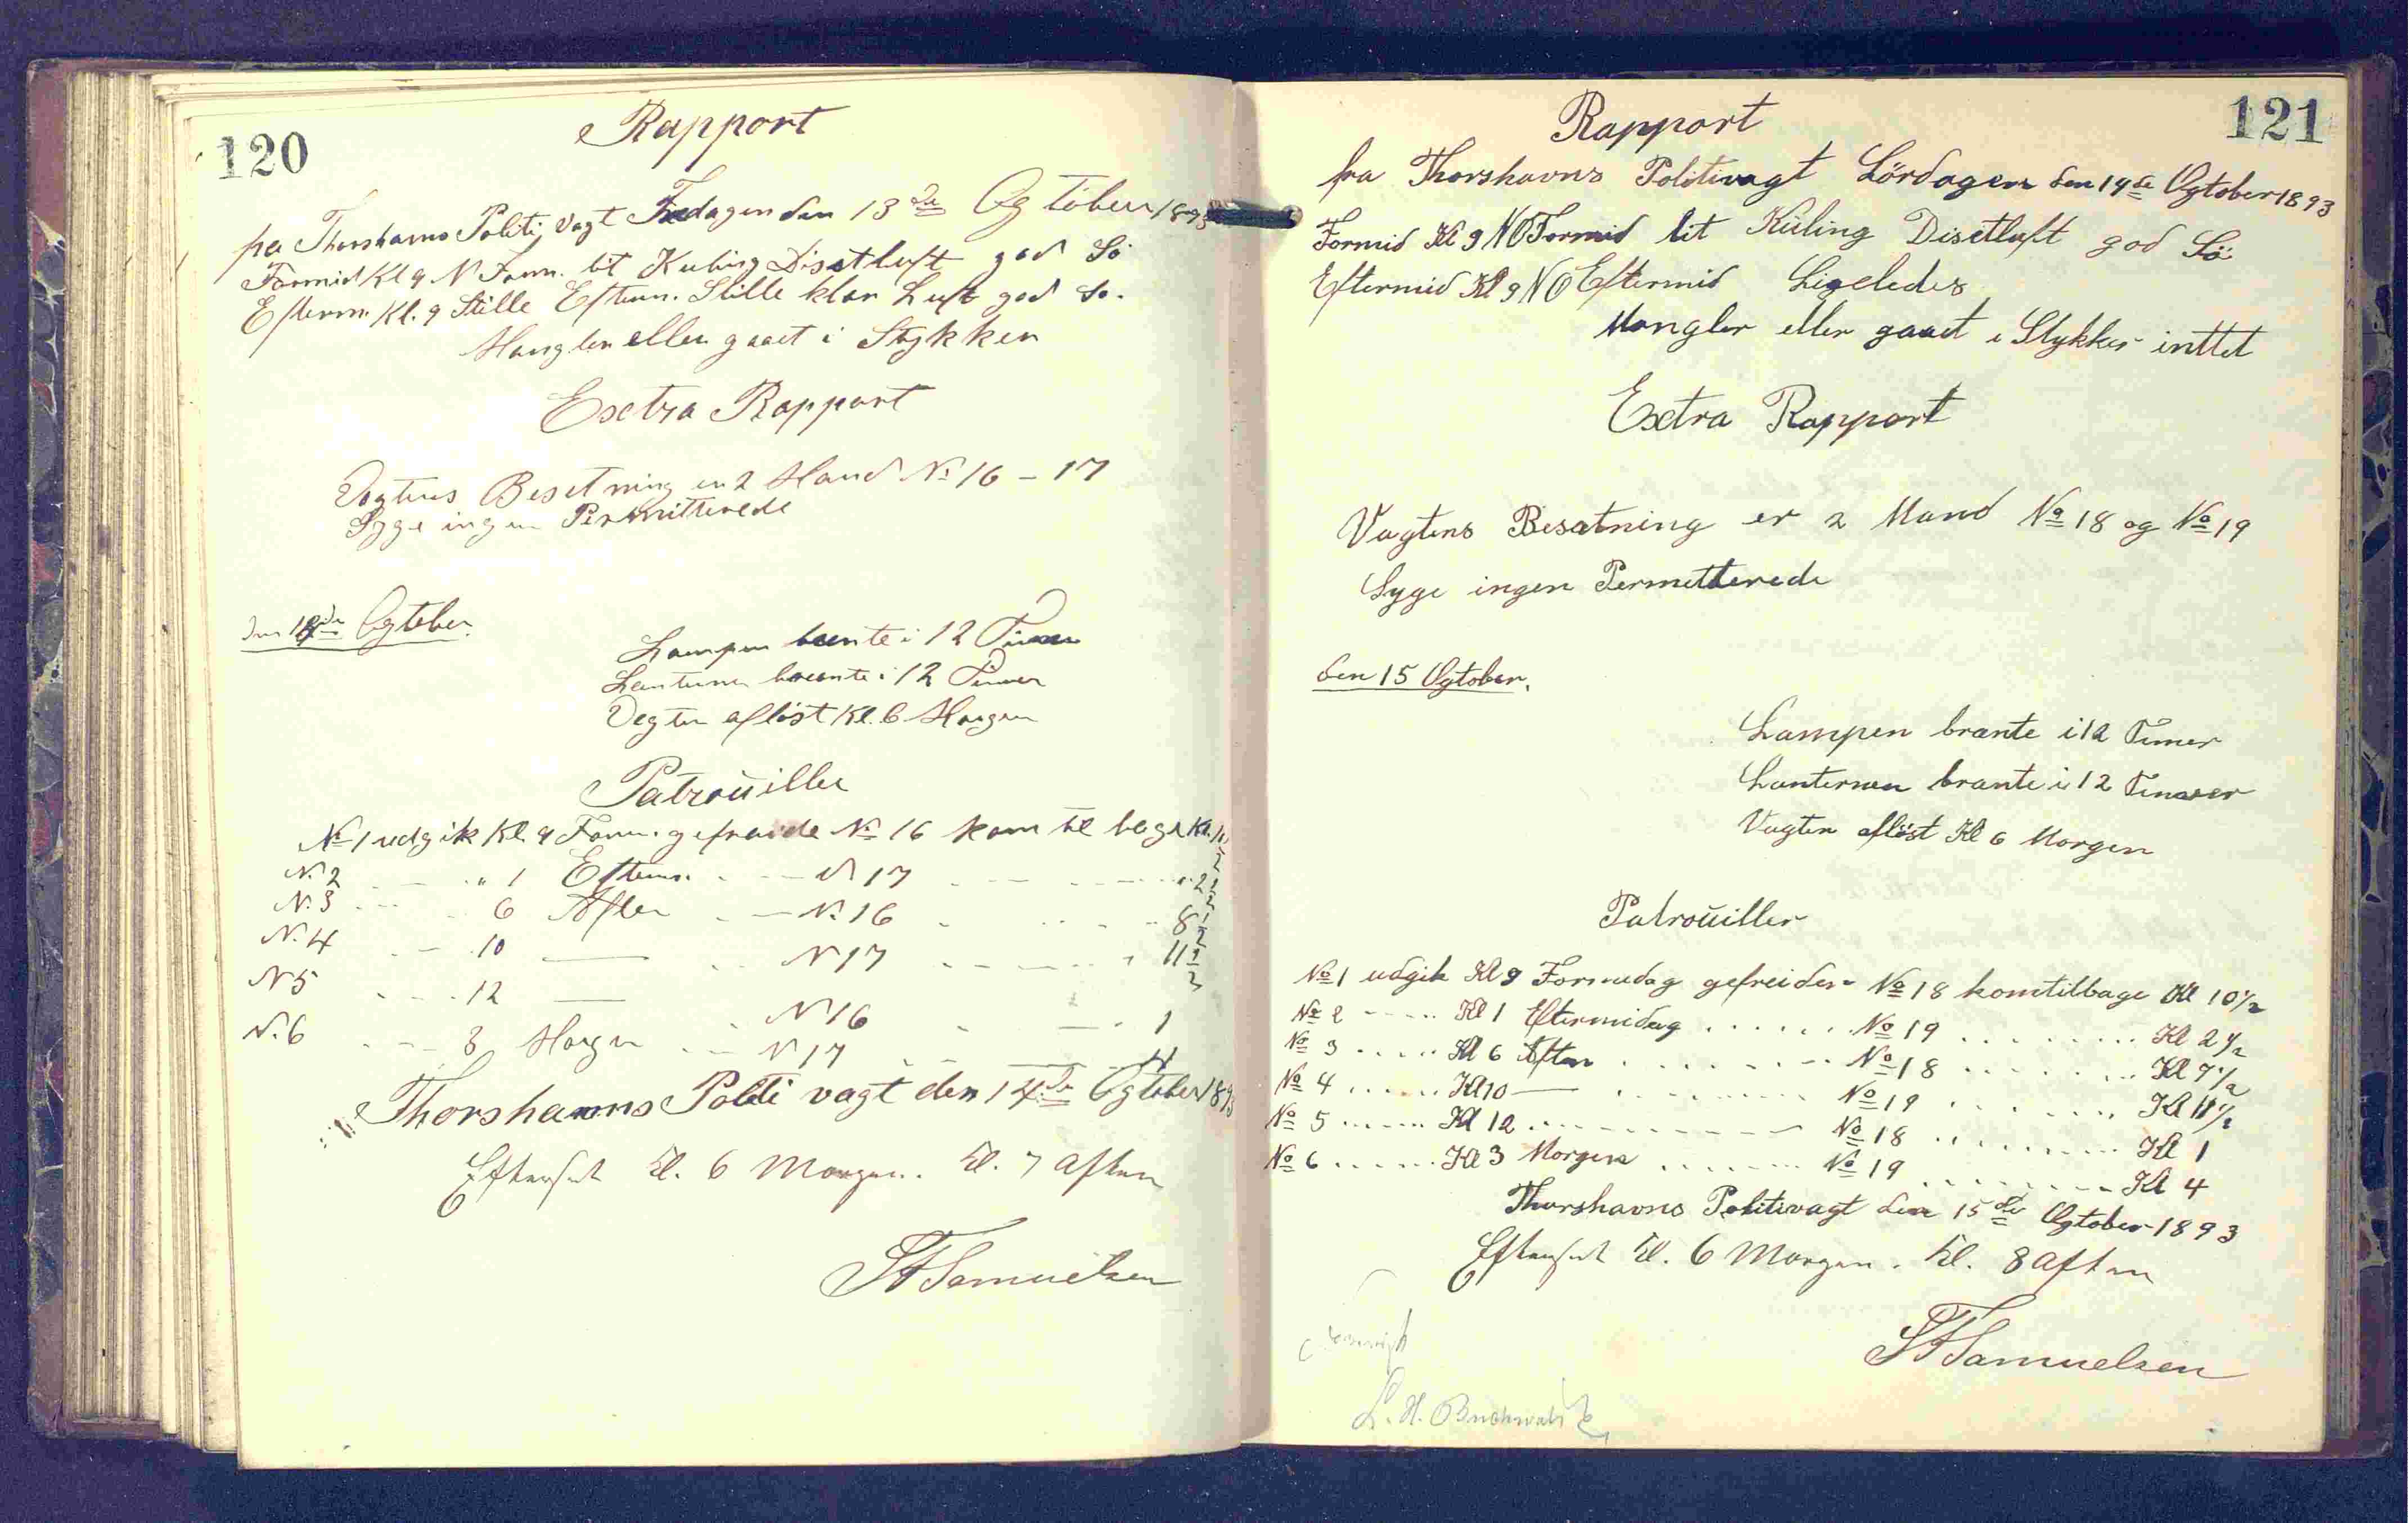 120
Rapport
fra Thorshavns Politi Vagt Fredagen den 13de Ogtober 1893
Formid Kl 9 N Form. lit Kuling Disetluft god Sö
Efterm. Kl. 9 Stille Efterm. Stille klar Luft god So.
Mangler eller gaaet i Stykker
Exctra Rapport
Vagtens Besetning er 2 Mand No 16 - 17
Syge ingen Permitterede
den 14de Ogtober
Lampen brente i 12 Timer
Lanternen brente i 12 Timer
Vagten aflöst Kl. 6 Morgen
Patroüiller
No 1 udgik Kl. 9 Form. gefreide No 16 kom til bage Kl.
N. 2 " 1 Efterm. N 17 2½
N. 3 6 Aften N. 16 8½
N. 4 10 — N 17 11½
N 5 12 — N 16 1
N. 6 3 Morgen N 17 4
Thorshavns Politi vagt den 14de Ogtober 1893
Efterset Kl. 6 Morgen. Kl. 7 Aften
Samuelsen
121
Rapport
fra Thorshavns Politivagt Lördagen den 14de Ogtober 1893
Formid Kl 9 NO Formid lit Küling Disetluft god Sö
Eftermid Kl 9 NO Eftermid Ligeledes
Mangler eller gaaet i Stykker inttet
Exctra Rapport
Vagtens Besætning er 2 Mand No 18 og No 19
Syge ingen Permetterede
den 15 Ogtober.
Lampen brante i 12 Timer
Lanternen brante i 12 Timer
Vagten aflöst Kl 6 Morgen
Patroüiller
No 1 udgik Kl 9 Formidag gefreider No 18 komtilbage Kl 10½
No 2 Kl 1 Eftermidag No 19 Kl 2½
No 3 Kl 6 Aften No 18 Kl 7½
No 4 Kl 10 — No 19 Kl 11½
No 5 Kl 12 No 18 Kl 1
No 6 Kl 3 Morgen No 19 Kl 4
Thorshavns Politivagt den 15de Ogtober 1893
Efterset Kl. 6 Morgen. Kl. 8 Aften
Samuelsen
L. H. Buchwald